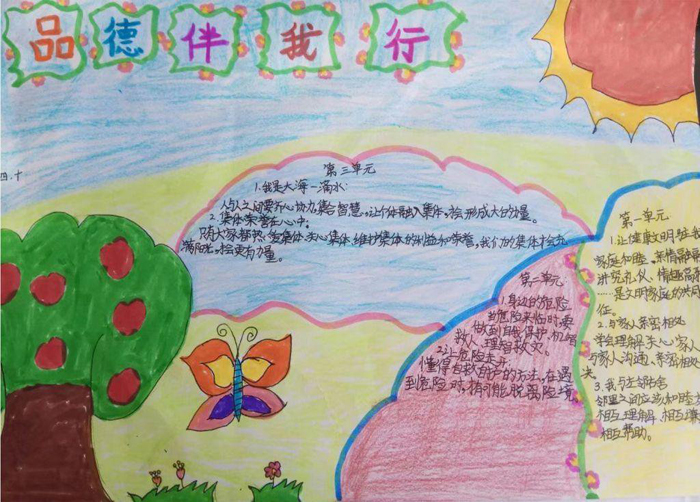 品德伴我行
四.十
第三单元
1.我是大海一滴水:
人与人之间要齐心协力,集合智慧,让个体融入集体,会形成大的力量。
2.集体荣誉在心中。
只有大家都热爱集体、关心集体、维护集体的利益和荣誉,我们的集体会充
满阳光,会更有力量。
第二单元
1.身边的危险
当危险来临时,要
做到自我保护,机智
救人,理智救灾。
2.让危险走开
懂得自救自护的方法,在遇
到危险时,才可能脱离险境
第一单元
1.让健康文明驻我
家庭和睦、亲情融融
讲究礼仪、情趣高
……是文明家庭的共同
任。
2.与家人亲密相处
学会理解、关心家人
与家人沟通,亲密相处
决。
3.我与左邻右舍
邻里之间应该和睦
相互理解、相互
相互帮助。